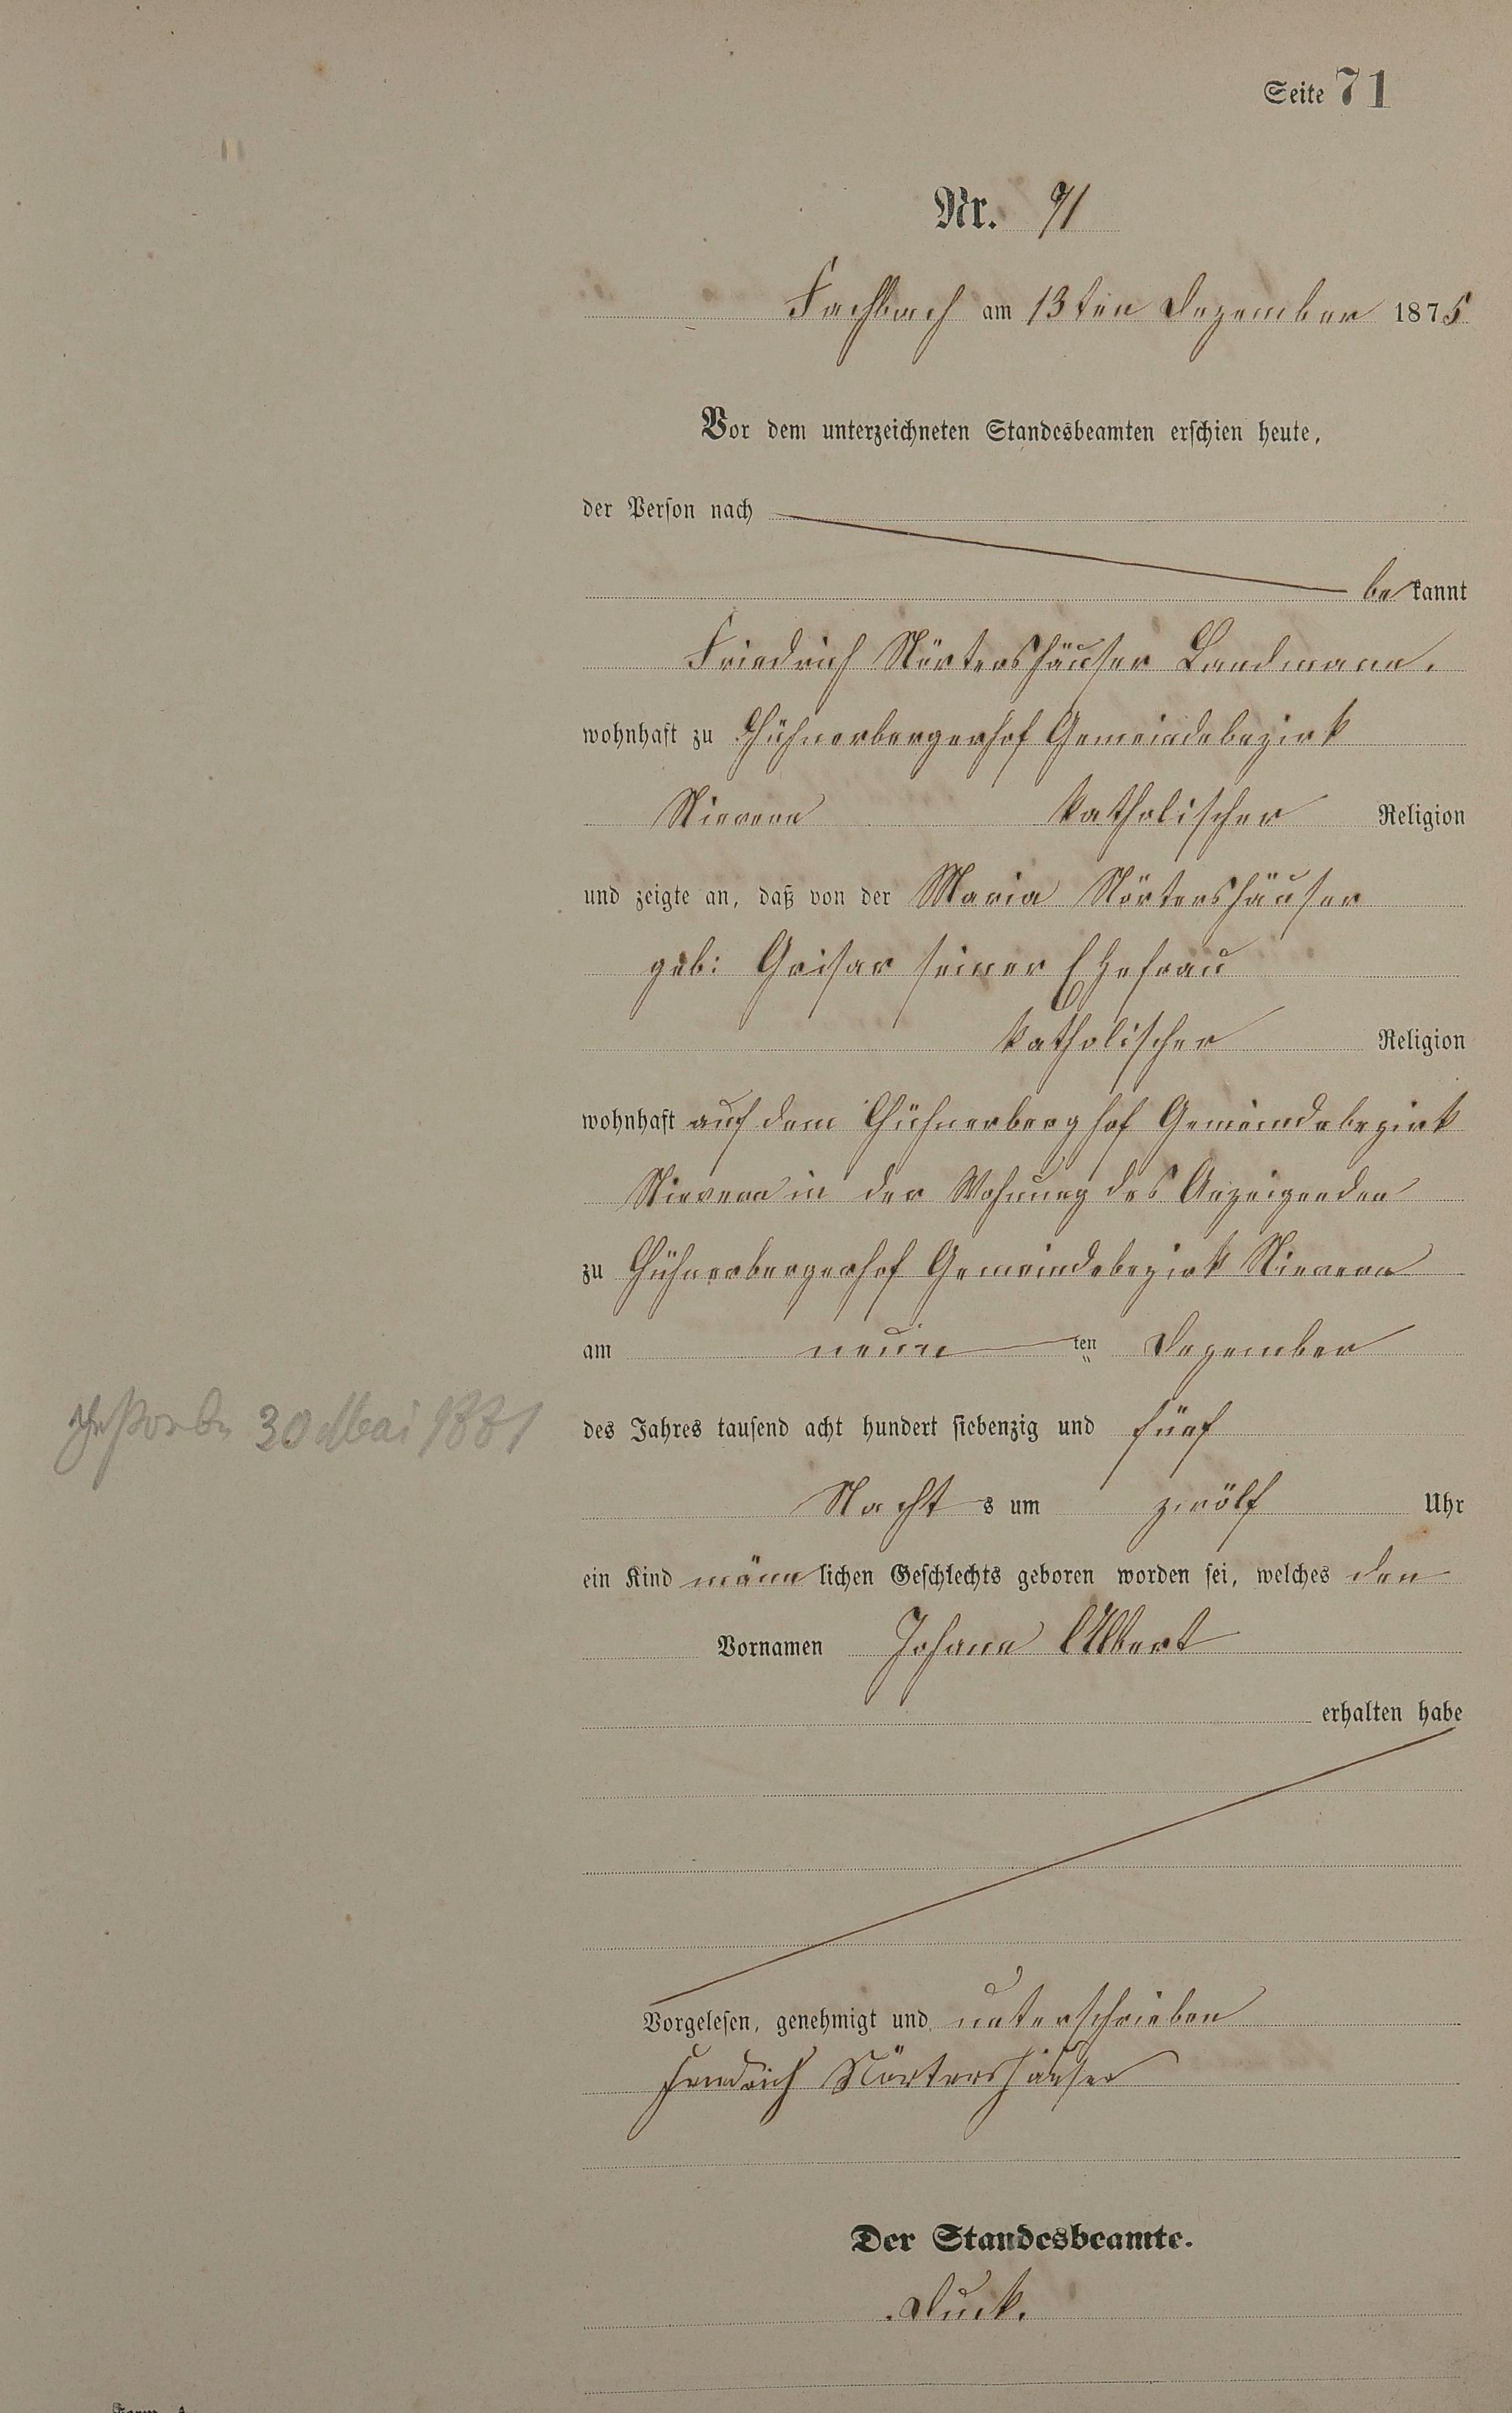 Seite 71
Nr. 71
Fachbach am 13ten Dezember 1875
Vor dem unterzeichneten Standesbeamten erschien heute,
der Person nach
bekannt
Friedrich Nörtershäuser Landmann,
wohnhaft zu Hühnerbergerhof Gemeindebezirk
Nievern katholischer Religion
und zeigte an, daß von der Maria Nörtershäuser
geb: Grisar seiner Ehefrau
katholischer Religion
wohnhaft auf dem Hühnerberghof Gemeindebezirk
Nievern in der Wohnung des Anzeigenden
zu Hühnerbergerhof Gemeindebezirk Nievern
am neun ten Dezember
gestorben 30 Mai 1881
des Jahres tausend acht hundert siebenzig und fünf
Nacht s um zwölf Uhr
ein Kind männlichen Geschlechts geboren worden sei, welches den
Vornamen Johann Albert
erhalten habe
Vorgelesen, genehmigt und unterschrieben
Friedrich Nörtershäuser
Der Standesbeamte.
Duck.